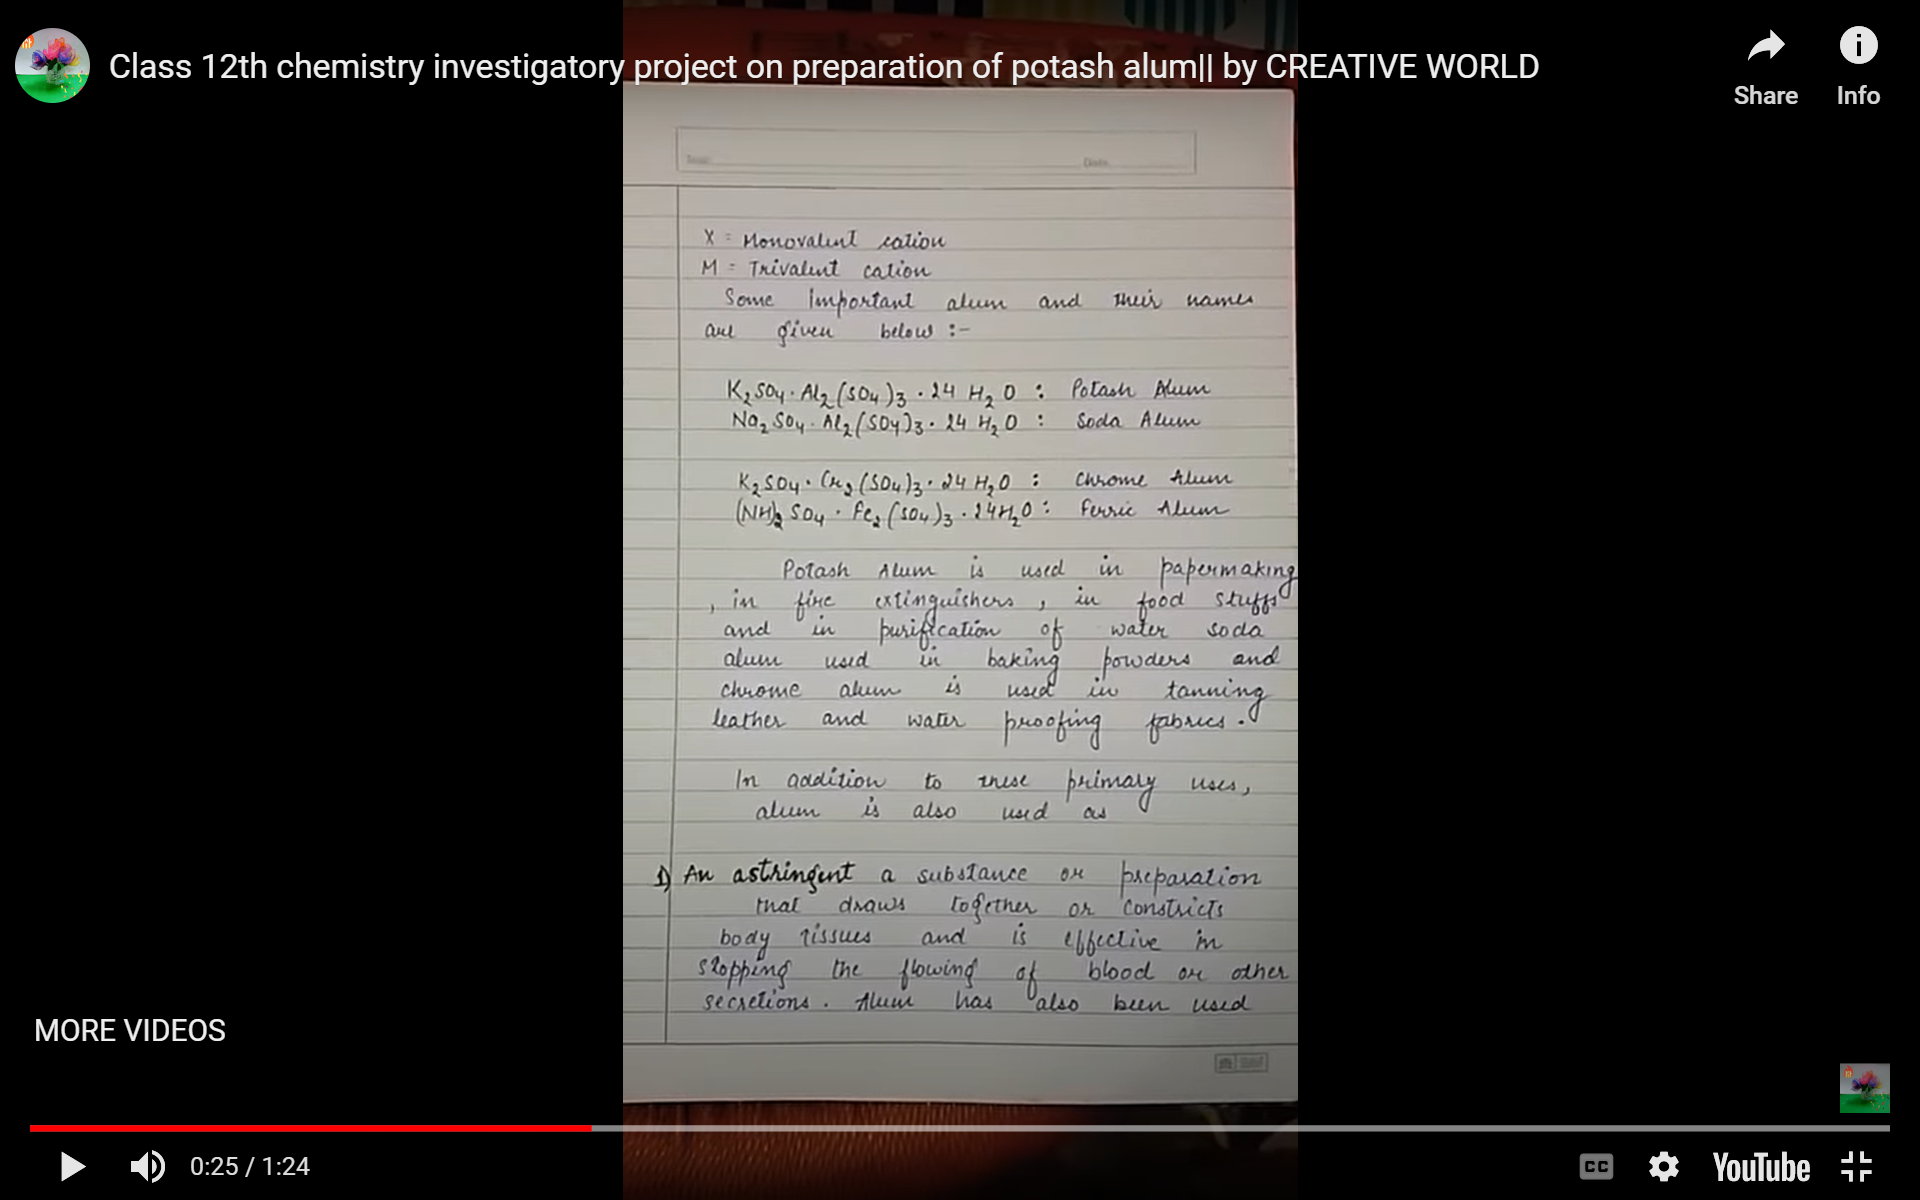 Class 12th chemistry investigatory project on preparation of potash alum|| by CREATIVE WORLD
Share
Info
Date
X = Monovalent cation
M = Trivalent cation
Some Important alum and their names
are given below :-
K₂SO₄·Al₂(SO₄)₃·24 H₂O : Potash Alum
Na₂SO₄·Al₂(SO₄)₃·24 H₂O : Soda Alum
K₂SO₄·Cr₂(SO₄)₃·24 H₂O : Chrome Alum
(NH)₂SO₄·Fe₂(SO₄)₃·24H₂O : Ferric Alum
Potash Alum is used in papermaking
, in fire extinguishers, in food stuffs
and in purification of water soda
alum used in baking powders and
chrome alum is used in tanning
leather and water proofing fabrics.
In addition to these primary uses,
alum is also used as
1) An astringent a substance or preparation
that draws together or constricts
body tissues and is effective in
stopping the flowing of blood or other
secretions. Alum has also been used
MORE VIDEOS
0:25 / 1:24
CC
YouTube